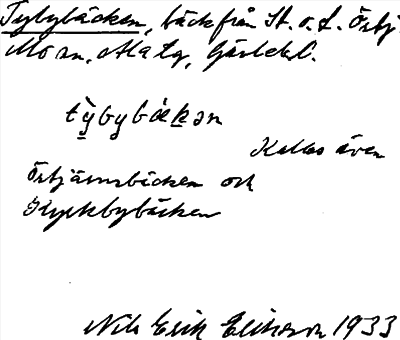 Tybybäcken, bäck från St. o. L. Örtj.
Mosn, Ala tg, Gävleb l.
tỳbybɛ́kən
Kallas även
Örtjärnsbäcken och
Kyrkbybäcken
Nils Erik Eliasson 1933